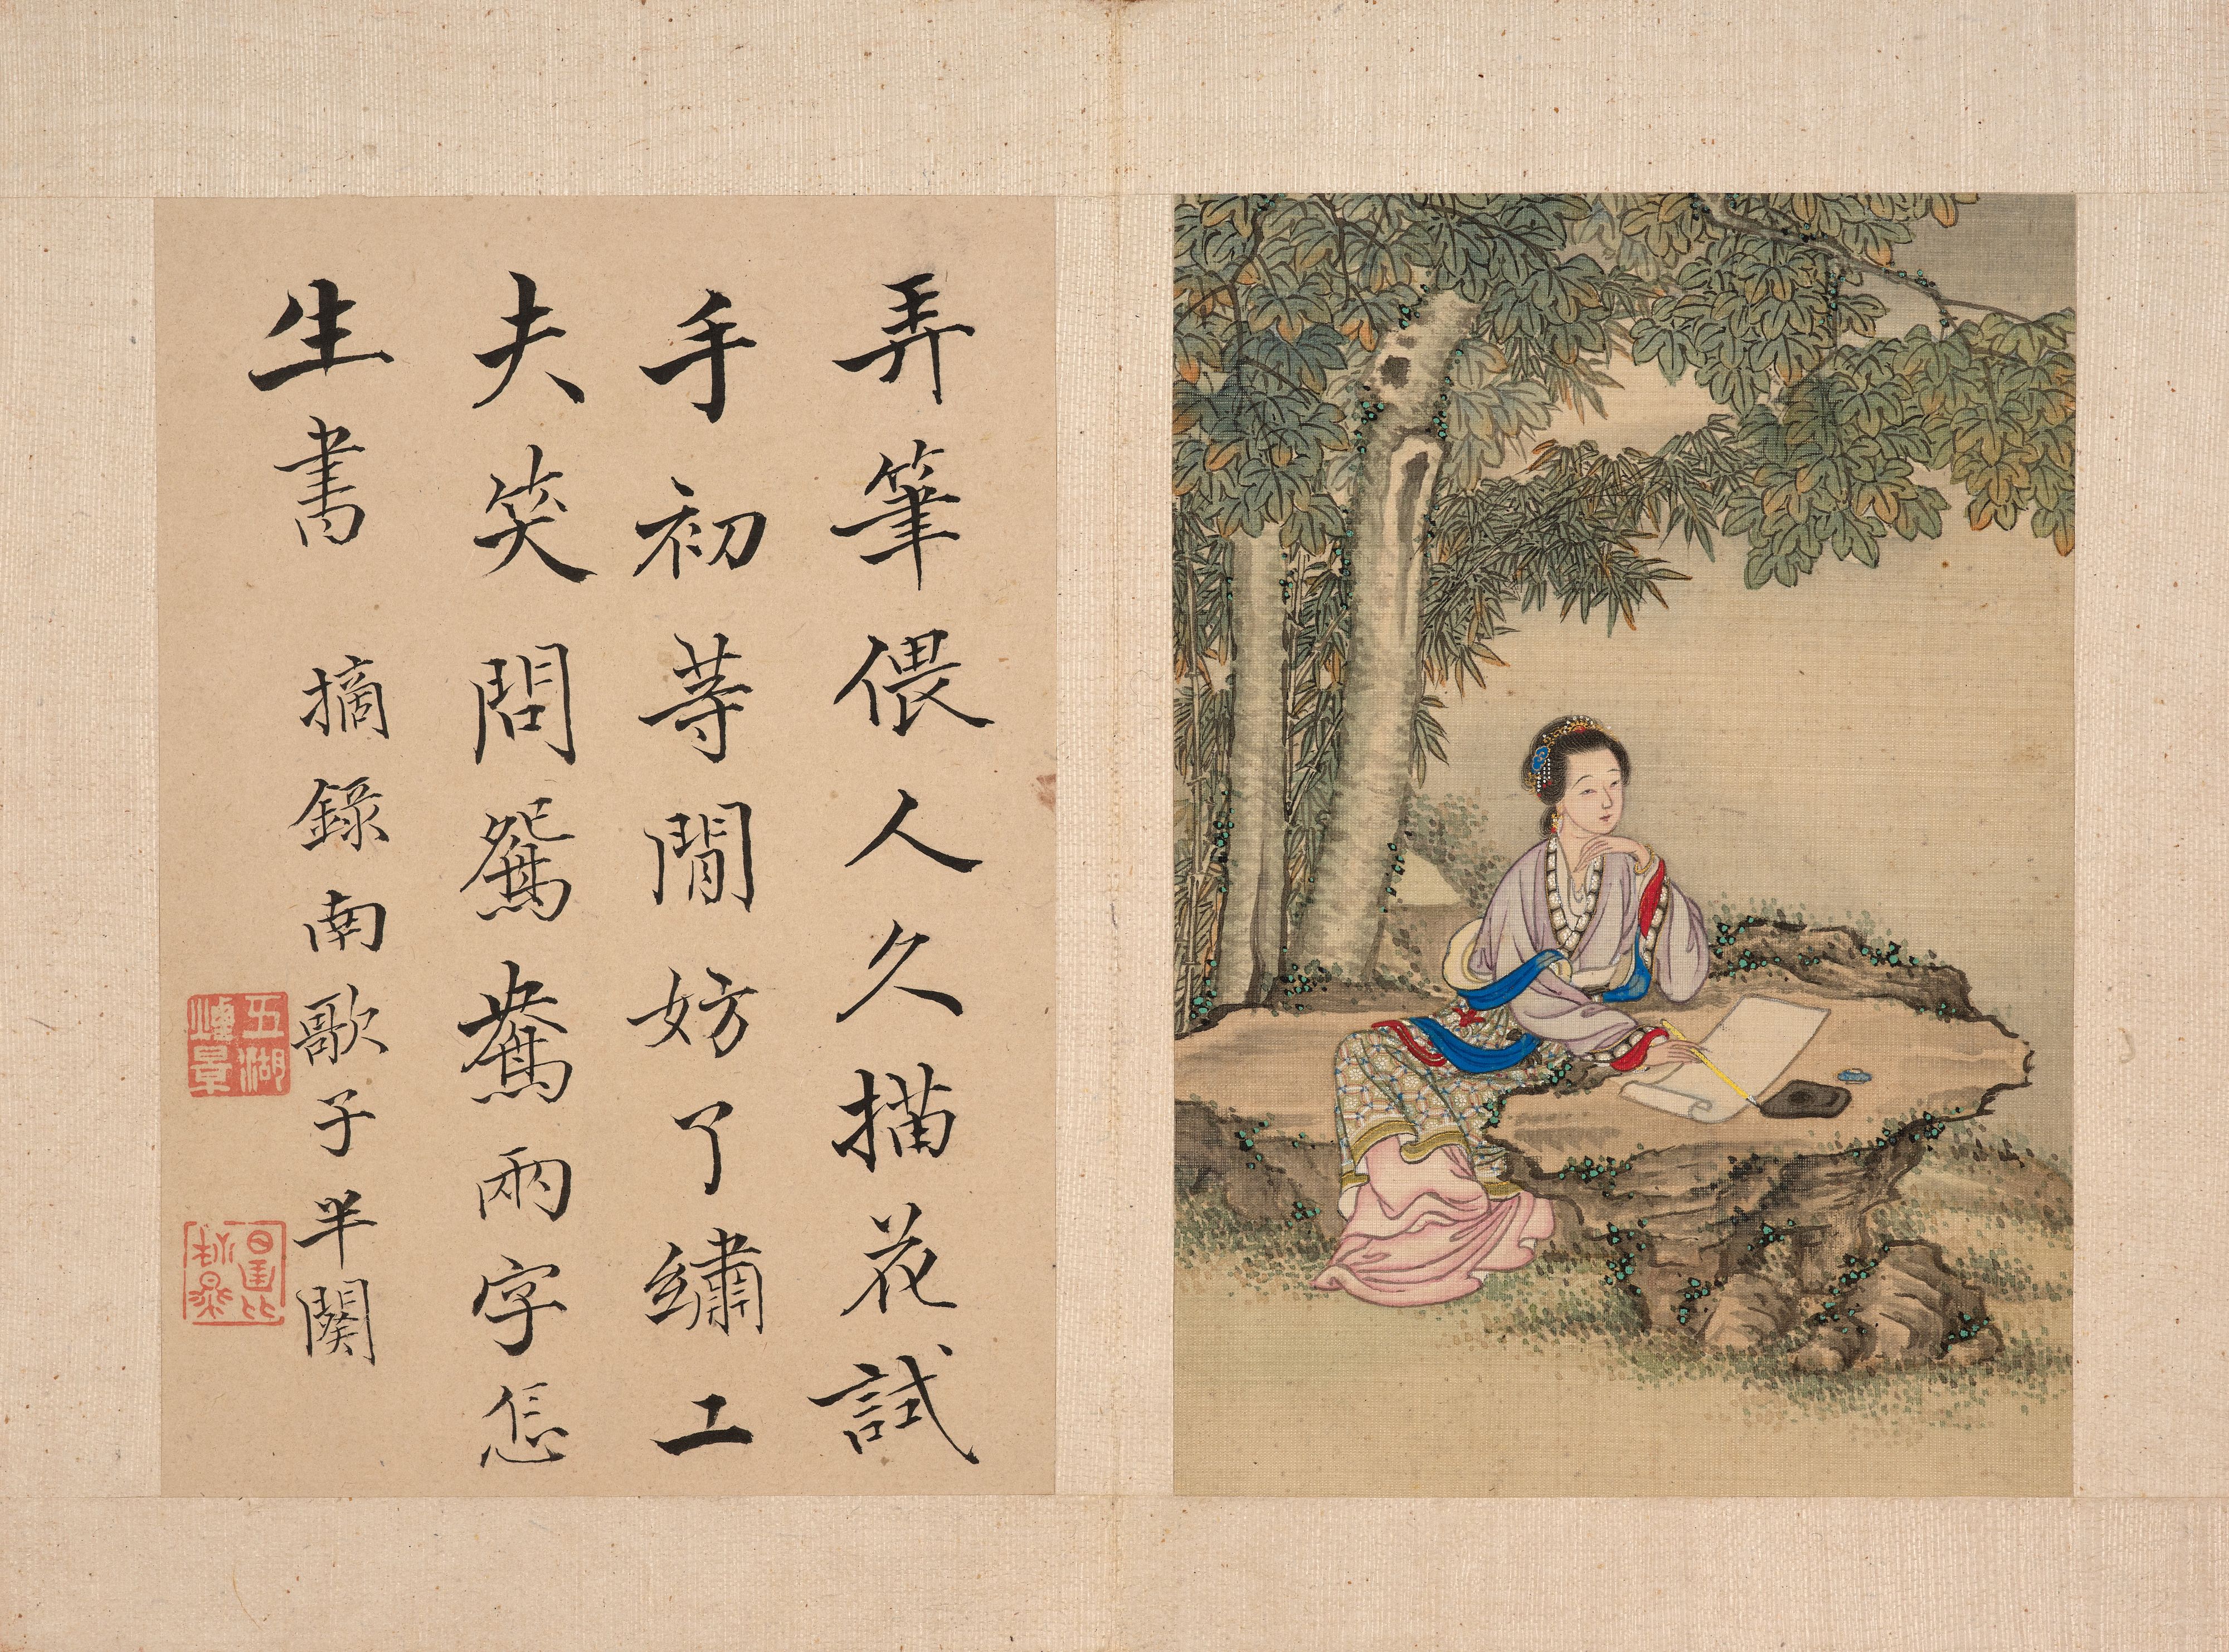 弄筆偎人久描花試
手初等閒妨了繡工
夫笑問鴛鴦兩字怎
生書
摘錄南歌子半闋
五湖煙景